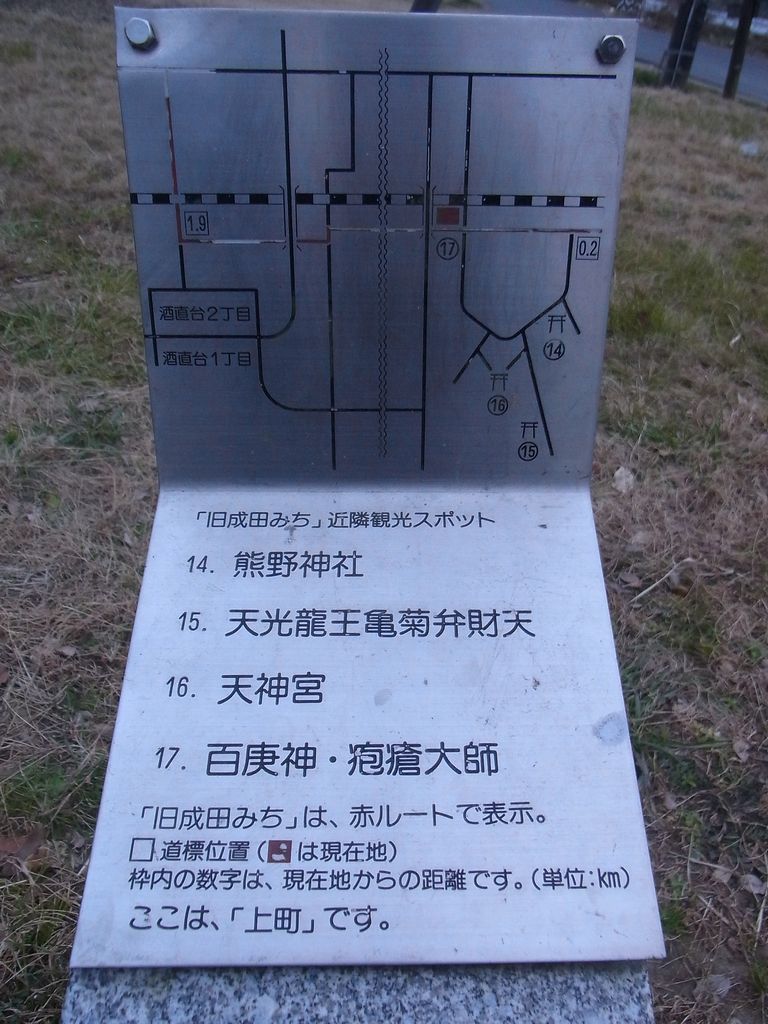 1.9
17
0.2
酒直台2丁目
酒直台1丁目
14
16
15
「旧成田みち」近隣観光スポット
14. 熊野神社
15. 天光龍王亀菊弁財天
16. 天神宮
17. 百庚神・疱瘡大師
「旧成田みち」は、赤ルートで表示。
□道標位置(■は現在地)
枠内の数字は、現在地からの距離です。(単位:km)
ここは、「上町」です。